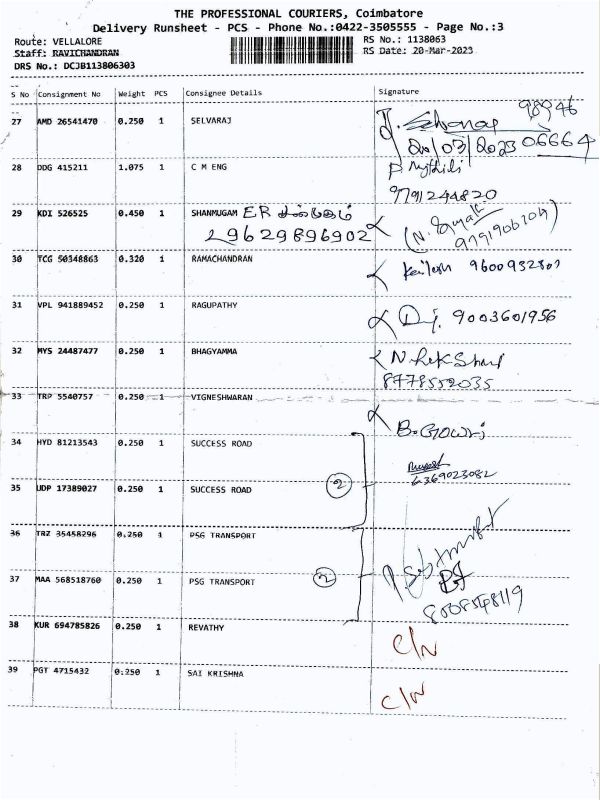 THE PROFESSIONAL COURIERS, Coimbatore
Delivery Runsheet - PCS - Phone No.:0422-3505555 - Page No.:3
Route: VELLALORE RS No.: 1138063
Staff: RAVICHANDRAN RS Date: 20-Mar-2023
DRS No.: DCJB113806303
S No Consignment No Weight PCS Consignee Details Signature
98946
27 AMD 26541470 0.250 1 SELVARAJ
20/03/2023 06664
28 DDG 415211 1.075 1 C M ENG P. Mythili
9791244820
29 KDI 526525 0.450 1 SHANMUGAM ER சண்முகம்
9629896902
30 TCG 50348863 0.320 1 RAMACHANDRAN
31 VPL 941889452 0.250 1 RAGUPATHY 9003601956
32 MYS 24487477 0.250 1 BHAGYAMMA
8778552035
33 TRP 5540757 0.250 1 VIGNESHWARAN
B. Gowri
34 HYD 81213543 0.250 1 SUCCESS ROAD
6369023082
2
35 UDP 17389027 0.250 1 SUCCESS ROAD
36 TRZ 35458296 0.250 1 PSG TRANSPORT
2
37 MAA 568518760 0.250 1 PSG TRANSPORT
38 KUR 694785826 0.250 1 REVATHY C/N
39 PGT 4715432 0.250 1 SAI KRISHNA C/N